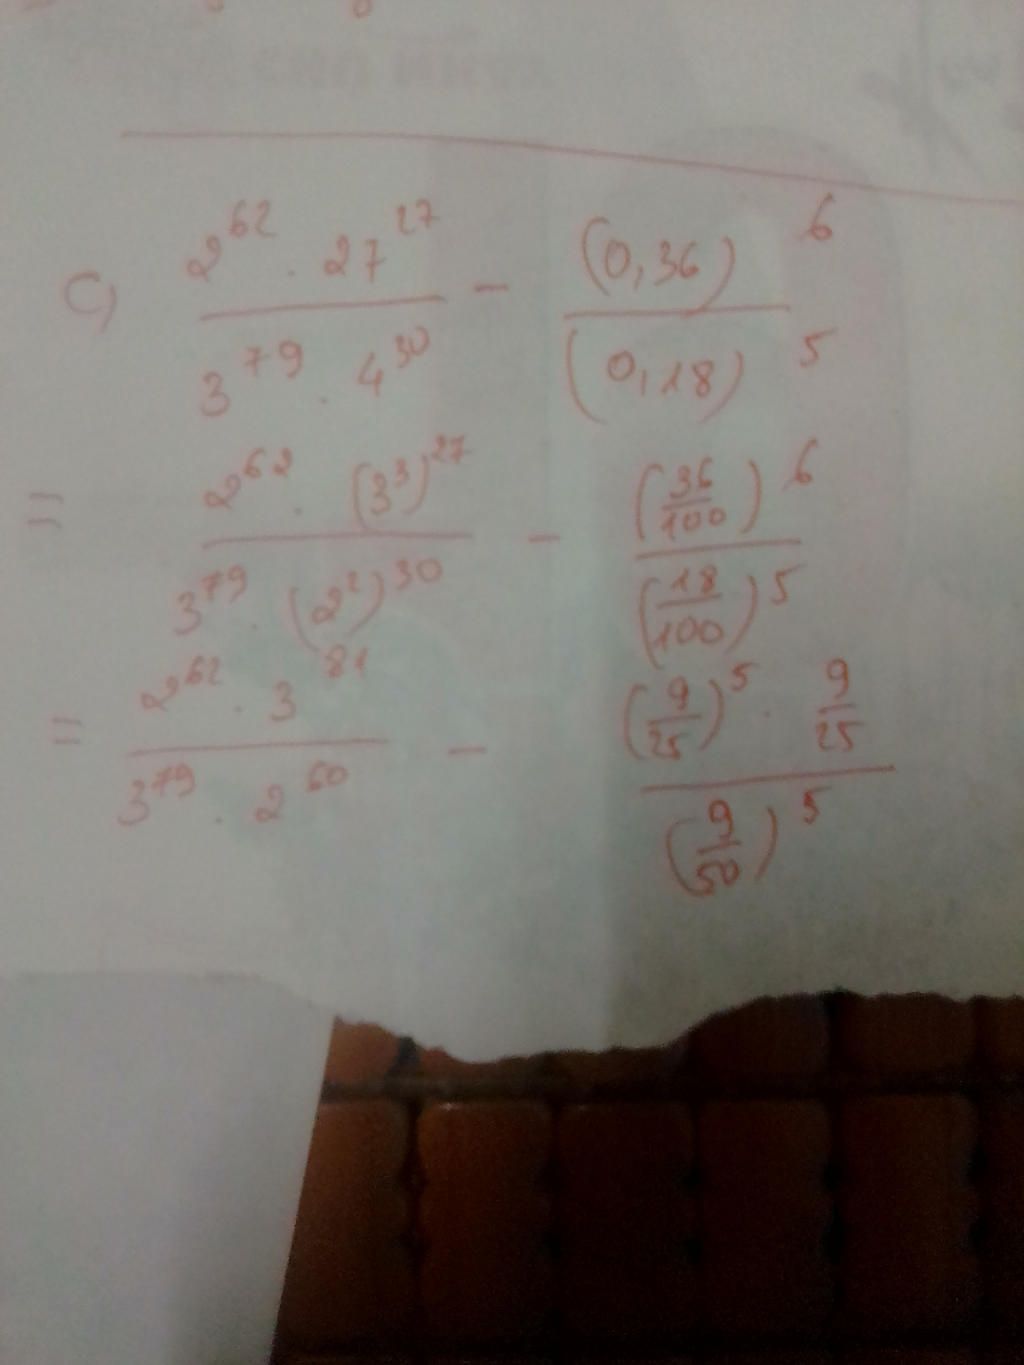 C) \frac{2^{62} . 27^{27}}{3^{79} . 4^{30}} - \frac{(0,36)^6}{(0,18)^5}
= \frac{2^{62} . (3^3)^{27}}{3^{79} . (2^2)^{30}} - \frac{(\frac{36}{100})^6}{(\frac{18}{100})^5}
= \frac{2^{62} . 3^{81}}{3^{79} . 2^{60}} - \frac{(\frac{9}{25})^5 . \frac{9}{25}}{(\frac{9}{50})^5}